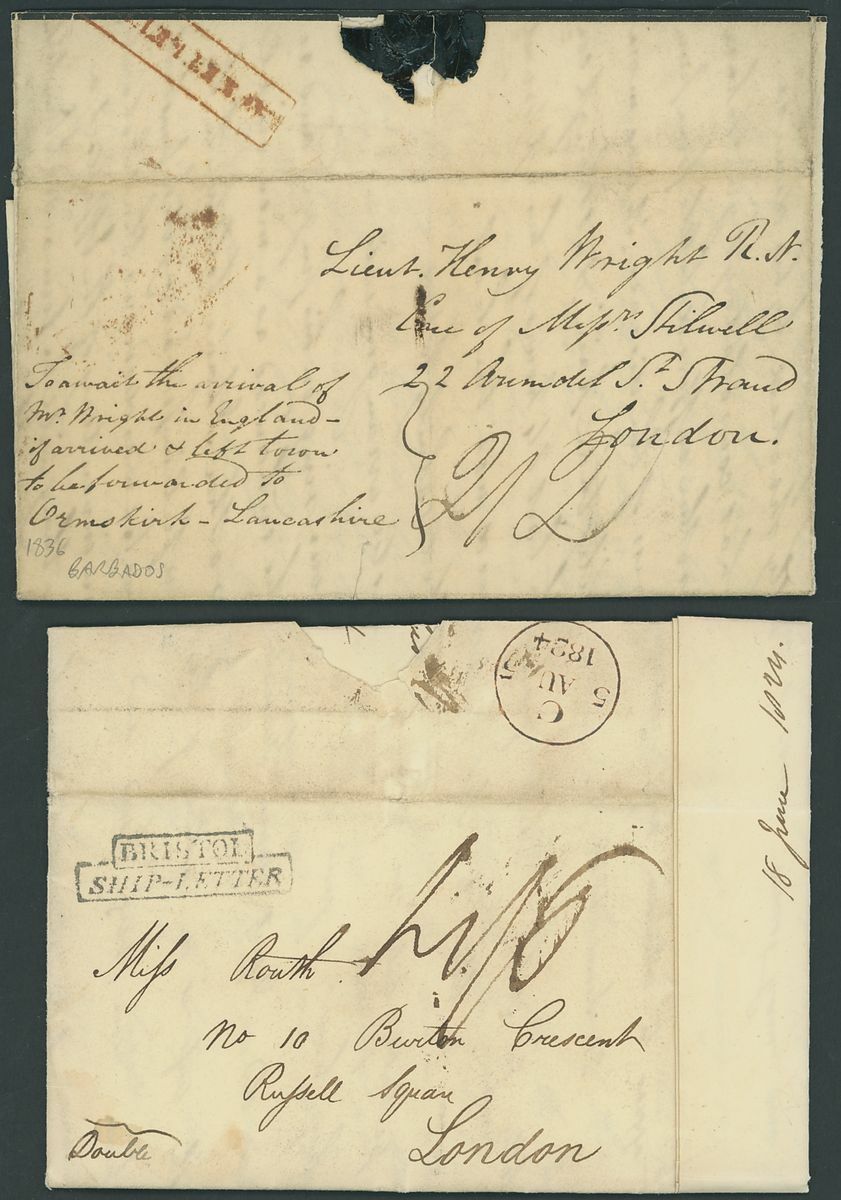 Lieut. Henry Wright R.N.
Care of Messrs Stilwell
22 Arundel St. Strand
London.
To await the arrival of
Mr. Wright in England -
if arrived & left town
to be forwarded to
Ormskirk - Lancashire
2/2
1836
BARBADOS
C
5 AU 5
1824
18 June 1824.
BRISTOL
SHIP-LETTER
Miss Routh
No 10 Burton Crescent
Russell Square
London
Double